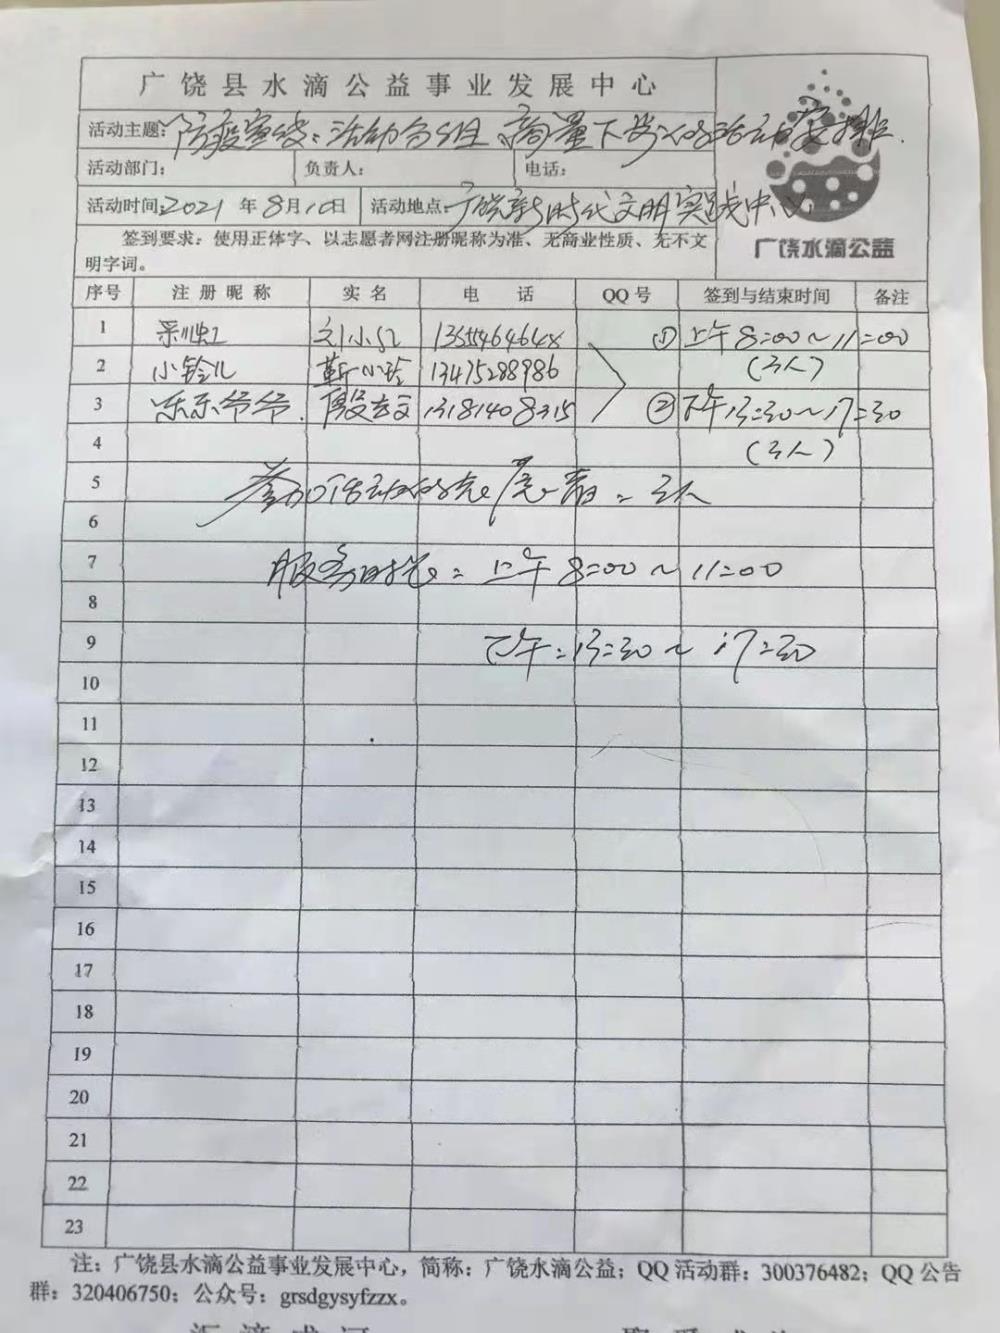 广饶县水滴公益事业发展中心
活动主题：防疫宣传：活动分组、商量下步的活动安排.
活动部门： 负责人： 电话：
活动时间：2021年8月10日 活动地点：广饶新时代文明实践中心
签到要求：使用正体字、以志愿者网注册昵称为准、无商业性质、无不文
明字词。
广饶水滴公益
序号 注册昵称 实名 电话 QQ号 签到与结束时间 备注
1 彩虹 刘小红 ①上午8:00～11:00
2 小铃儿 靳小玲 13475288986 (3人)
3 乐乐爷爷. 13181408315 ②下午13:30～17:30
4 (3人)
5 参加活动的志愿者：3人
6
7 服务时长：上午8:00～11:00
8
9 下午：13:30～17:30
10
11
12
13
14
15
16
17
18
19
20
21
22
23
注：广饶县水滴公益事业发展中心，简称：广饶水滴公益；QQ活动群：300376482；QQ公告
群：320406750；公众号：grsdgysyfzzx。